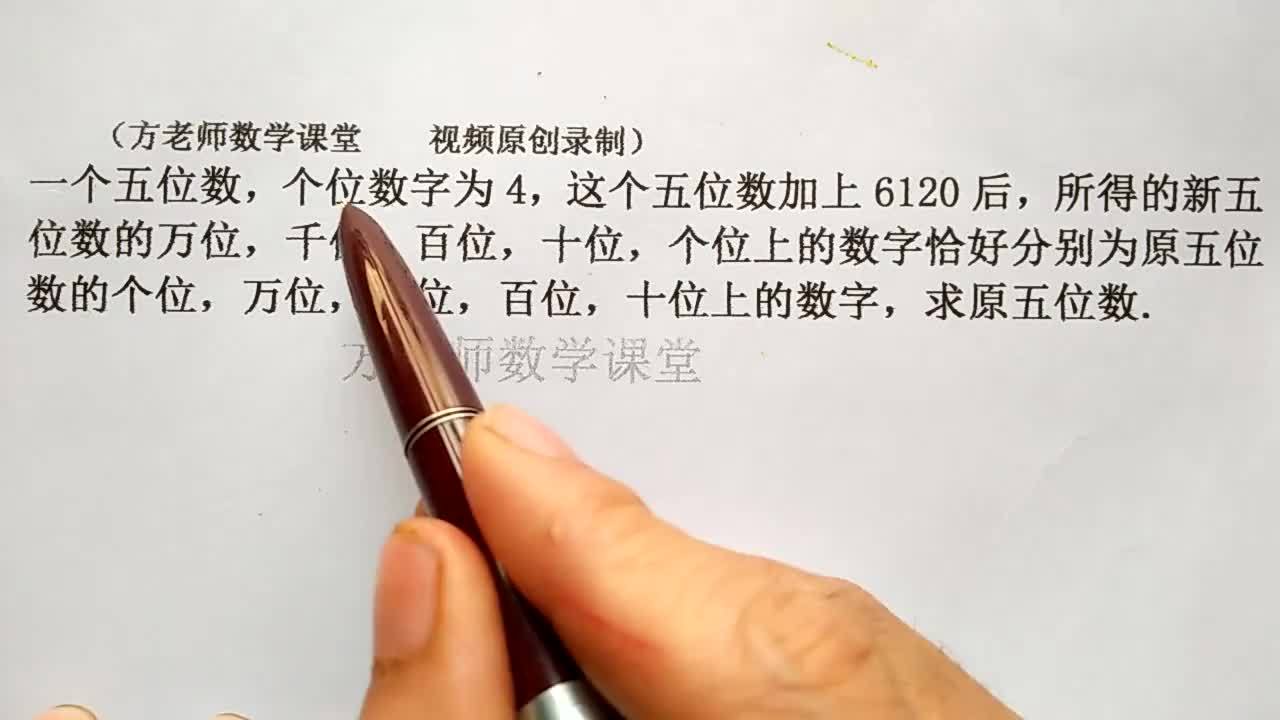 （方老师数学课堂 视频原创录制）
一个五位数，个位数字为4，这个五位数加上6120后，所得的新五
位数的万位，千 百位，十位，个位上的数字恰好分别为原五位
数的个位，万位， 位，百位，十位上的数字，求原五位数.
方 师数学课堂